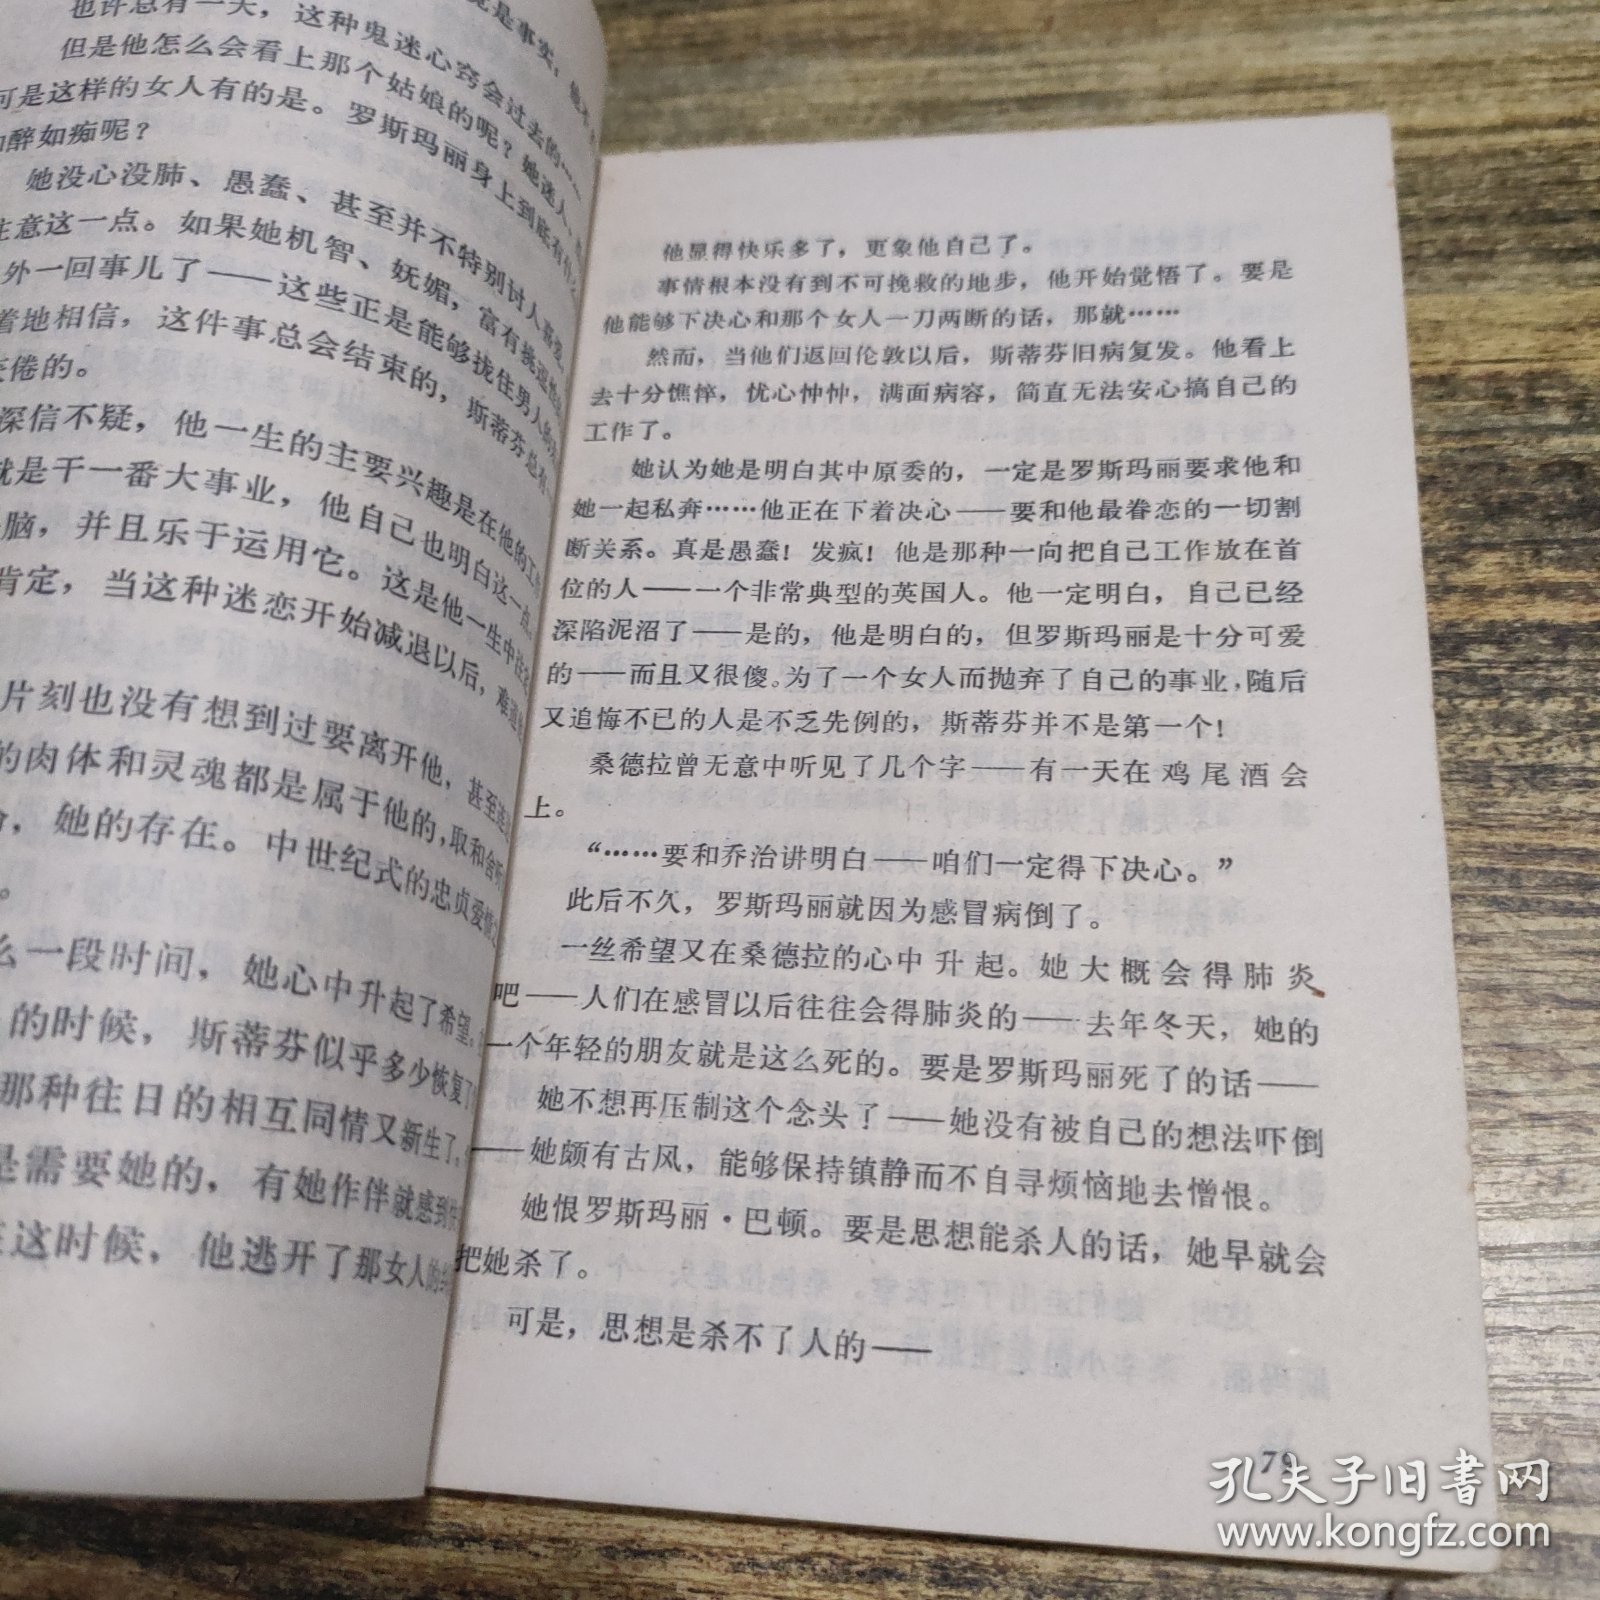 也许总有一天，这种鬼迷心窍会过去的……
但是他怎么会看上那个姑娘的呢？她迷人，
可是这样的女人有的是。罗斯玛丽身上到底有什么
醉如痴呢？
她没心没肺、愚蠢、甚至并不特别讨人喜爱，
注意这一点。如果她机智、妩媚，富有
外一回事儿了——这些正是能够拢住男人
着地相信，这件事总会结束的，斯蒂芬总有一
倦的。
深信不疑，他一生的主要兴趣是在他的工
就是干一番大事业，他自己也明白这一点。
脑，并且乐于运用它。这是他一生中
肯定，当这种迷恋开始减退以后，难道
片刻也没有想到过要离开他，甚至连
的肉体和灵魂都是属于他的，取和舍
，她的存在。中世纪式的忠贞爱情
。
么一段时间，她心中升起了希望。
的时候，斯蒂芬似乎多少恢复了
那种往日的相互同情又新生了。
是需要她的，有她作伴就感到
这时候，他逃开了那女人的
他显得快乐多了，更象他自己了。
事情根本没有到不可挽救的地步，他开始觉悟了。要是
他能够下决心和那个女人一刀两断的话，那就……
然而，当他们返回伦敦以后，斯蒂芬旧病复发。他看上
去十分憔悴，忧心忡忡，满面病容，简直无法安心搞自己的
工作了。
她认为她是明白其中原委的，一定是罗斯玛丽要求他和
她一起私奔……他正在下着决心——要和他最眷恋的一切割
断关系。真是愚蠢！发疯！他是那种一向把自己工作放在首
位的人——一个非常典型的英国人。他一定明白，自己已经
深陷泥沼了——是的，他是明白的，但罗斯玛丽是十分可爱
的——而且又很傻。为了一个女人而抛弃了自己的事业，随后
又追悔不已的人是不乏先例的，斯蒂芬并不是第一个！
桑德拉曾无意中听见了几个字——有一天在鸡尾酒会
上。
“……要和乔治讲明白——咱们一定得下决心。”
此后不久，罗斯玛丽就因为感冒病倒了。
一丝希望又在桑德拉的心中升起。她大概会得肺炎
吧——人们在感冒以后往往会得肺炎的——去年冬天，她的
一个年轻的朋友就是这么死的。要是罗斯玛丽死了的话——
她不想再压制这个念头了——她没有被自己的想法吓倒
——她颇有古风，能够保持镇静而不自寻烦恼地去憎恨。
她恨罗斯玛丽·巴顿。要是思想能杀人的话，她早就会
把她杀了。
可是，思想是杀不了人的——
79
孔夫子旧书网
www.kongfz.com